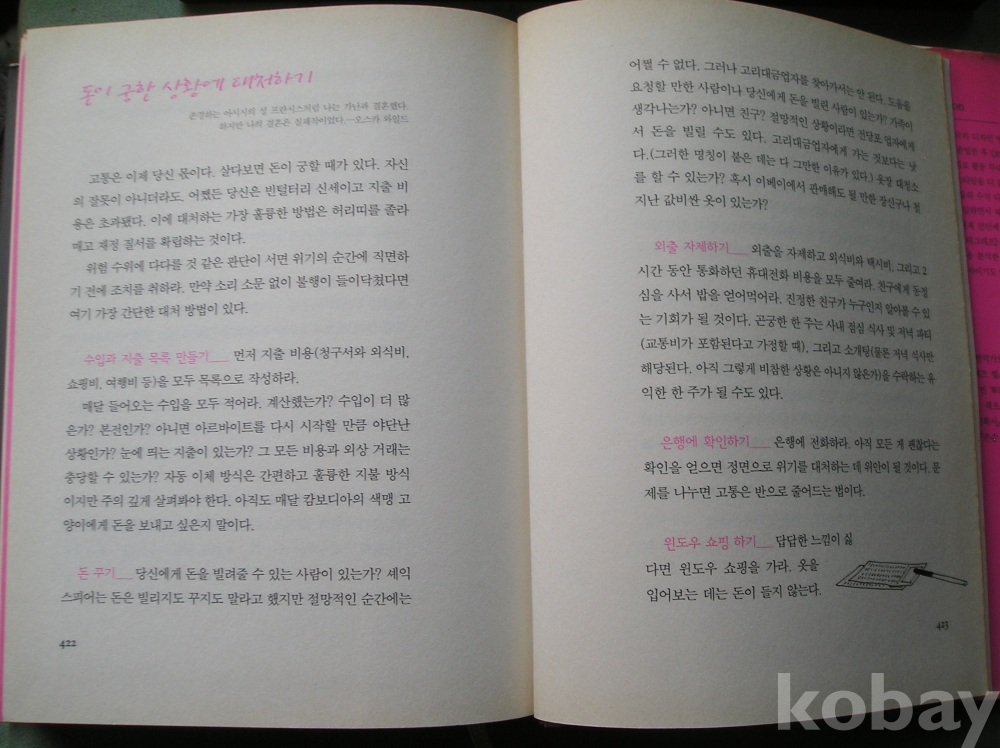 돈이 궁할 상황에 대처하기
존경하는 아시시의 성 프란시스처럼 나는 가난과 결혼했다.
하지만 나의 결혼은 실패작이었다.—오스카 와일드
고통은 이제 당신 몫이다. 살다보면 돈이 궁할 때가 있다. 자신
의 잘못이 아니더라도. 어쨌든 당신은 빈털터리 신세이고 지출 비
용은 초과됐다. 이에 대처하는 가장 훌륭한 방법은 허리띠를 졸라
매고 재정 질서를 확립하는 것이다.
위험 수위에 다다를 것 같은 판단이 서면 위기의 순간에 직면하
기 전에 조치를 취하라. 만약 소리 소문 없이 불행이 들이닥쳤다면
여기 가장 간단한 대처 방법이 있다.
수입과 지출 목록 만들기__ 먼저 지출 비용(청구서와 외식비,
쇼핑비, 여행비 등)을 모두 목록으로 작성하라.
매달 들어오는 수입을 모두 적어라. 계산했는가? 수입이 더 많
은가? 본전인가? 아니면 아르바이트를 다시 시작할 만큼 야단난
상황인가? 눈에 띄는 지출이 있는가? 그 모든 비용과 외상 거래는
충당할 수 있는가? 자동 이체 방식은 간편하고 훌륭한 지불 방식
이지만 주의 깊게 살펴봐야 한다. 아직도 매달 캄보디아의 색맹 고
양이에게 돈을 보내고 싶은지 말이다.
돈 꾸기__ 당신에게 돈을 빌려줄 수 있는 사람이 있는가? 셰익
스피어는 돈은 빌리지도 꾸지도 말라고 했지만 절망적인 순간에는
422
어쩔 수 없다. 그러나 고리대금업자를 찾아가서는 안 된다. 도움을
요청할 만한 사람이나 당신에게 돈을 빌린 사람이 있는가? 가족이
생각나는가? 아니면 친구? 절망적인 상황이라면 전당포 업자에게
서 돈을 빌릴 수도 있다. 고리대금업자에게 가는 것보다는 낫
다.(그러한 명칭이 붙은 데는 다 그만한 이유가 있다.) 옷장 대청소
를 할 수 있는가? 혹시 이베이에서 판매해도 될 만한 장신구나 철
지난 값비싼 옷이 있는가?
외출 자제하기__ 외출을 자제하고 외식비와 택시비, 그리고 2
시간 동안 통화하던 휴대전화 비용을 모두 줄여라. 친구에게 동정
심을 사서 밥을 얻어먹어라. 진정한 친구가 누구인지 알아볼 수 있
는 기회가 될 것이다. 곤궁한 한 주는 사내 점심 식사 및 저녁 파티
(교통비가 포함된다고 가정할 때), 그리고 소개팅(물론 저녁 식사만
해당된다. 아직 그렇게 비참한 상황은 아니지 않은가)을 수락하는 유
익한 한 주가 될 수도 있다.
은행에 확인하기__ 은행에 전화하라. 아직 모든 게 괜찮다는
확인을 얻으면 정면으로 위기를 대처하는 데 위안이 될 것이다. 문
제를 나누면 고통은 반으로 줄어드는 법이다.
윈도우 쇼핑 하기__ 답답한 느낌이 싫
다면 윈도우 쇼핑을 가라. 옷을
입어보는 데는 돈이 들지 않는다.
423
kobay